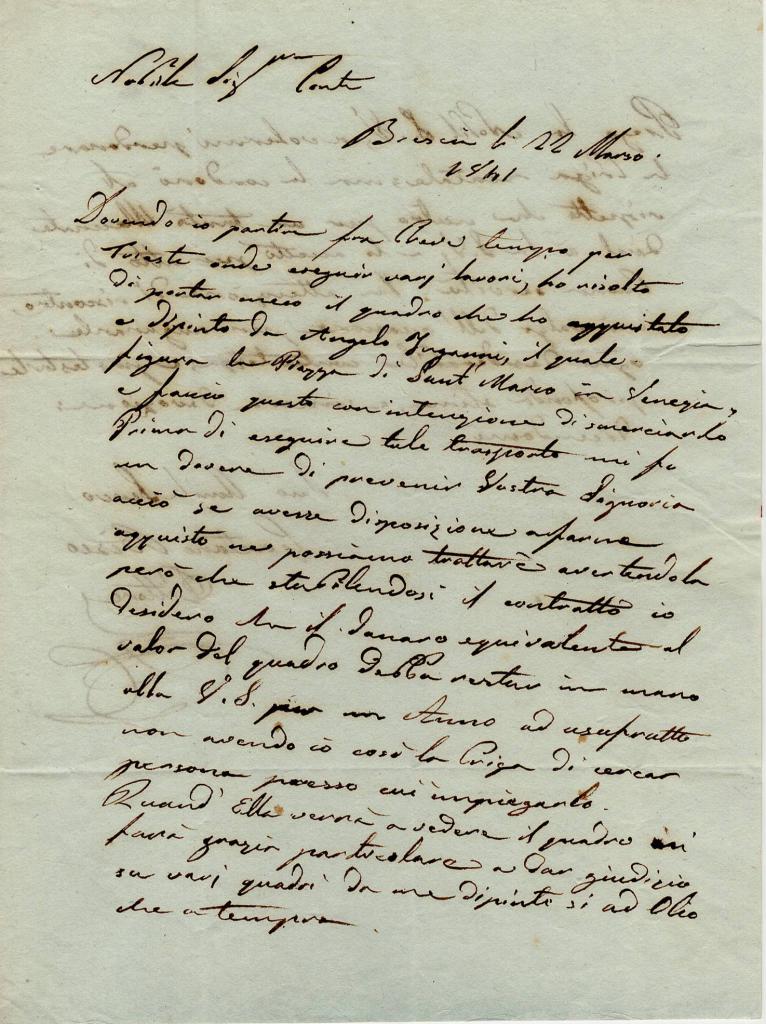 Nobile Sig.r Conte
Brescia li 22 Marzo
1841
Dovendo io partire fra breve tempo per
Trieste onde eseguir varj lavori, ho risolto
di portar meco il quadro che ho acquistato
e dipinto da Angelo Inganni, il quale
figura la Piazza di Sant' Marco in Venezia,
e faccio questo con intenzione di smerciarlo
Prima di eseguire tale trasporto mi fo
un dovere di prevenir Vostra Signoria
acciò se avesse disposizione a farne
acquisto ne possiamo trattare avertendola
però che stabilendosi il contratto io
desidero che il danaro equivalente al
valor del quadro debba restar in mano
alla V.S. per un Anno ad usufrutto
non avendo io così la briga di cercar
persona presso cui impiegarlo.
Quand' Ella verrà a vedere il quadro mi
farà grazia particolare a dar giudizio
su varj quadri da me dipinti sì ad Olio
che a tempra